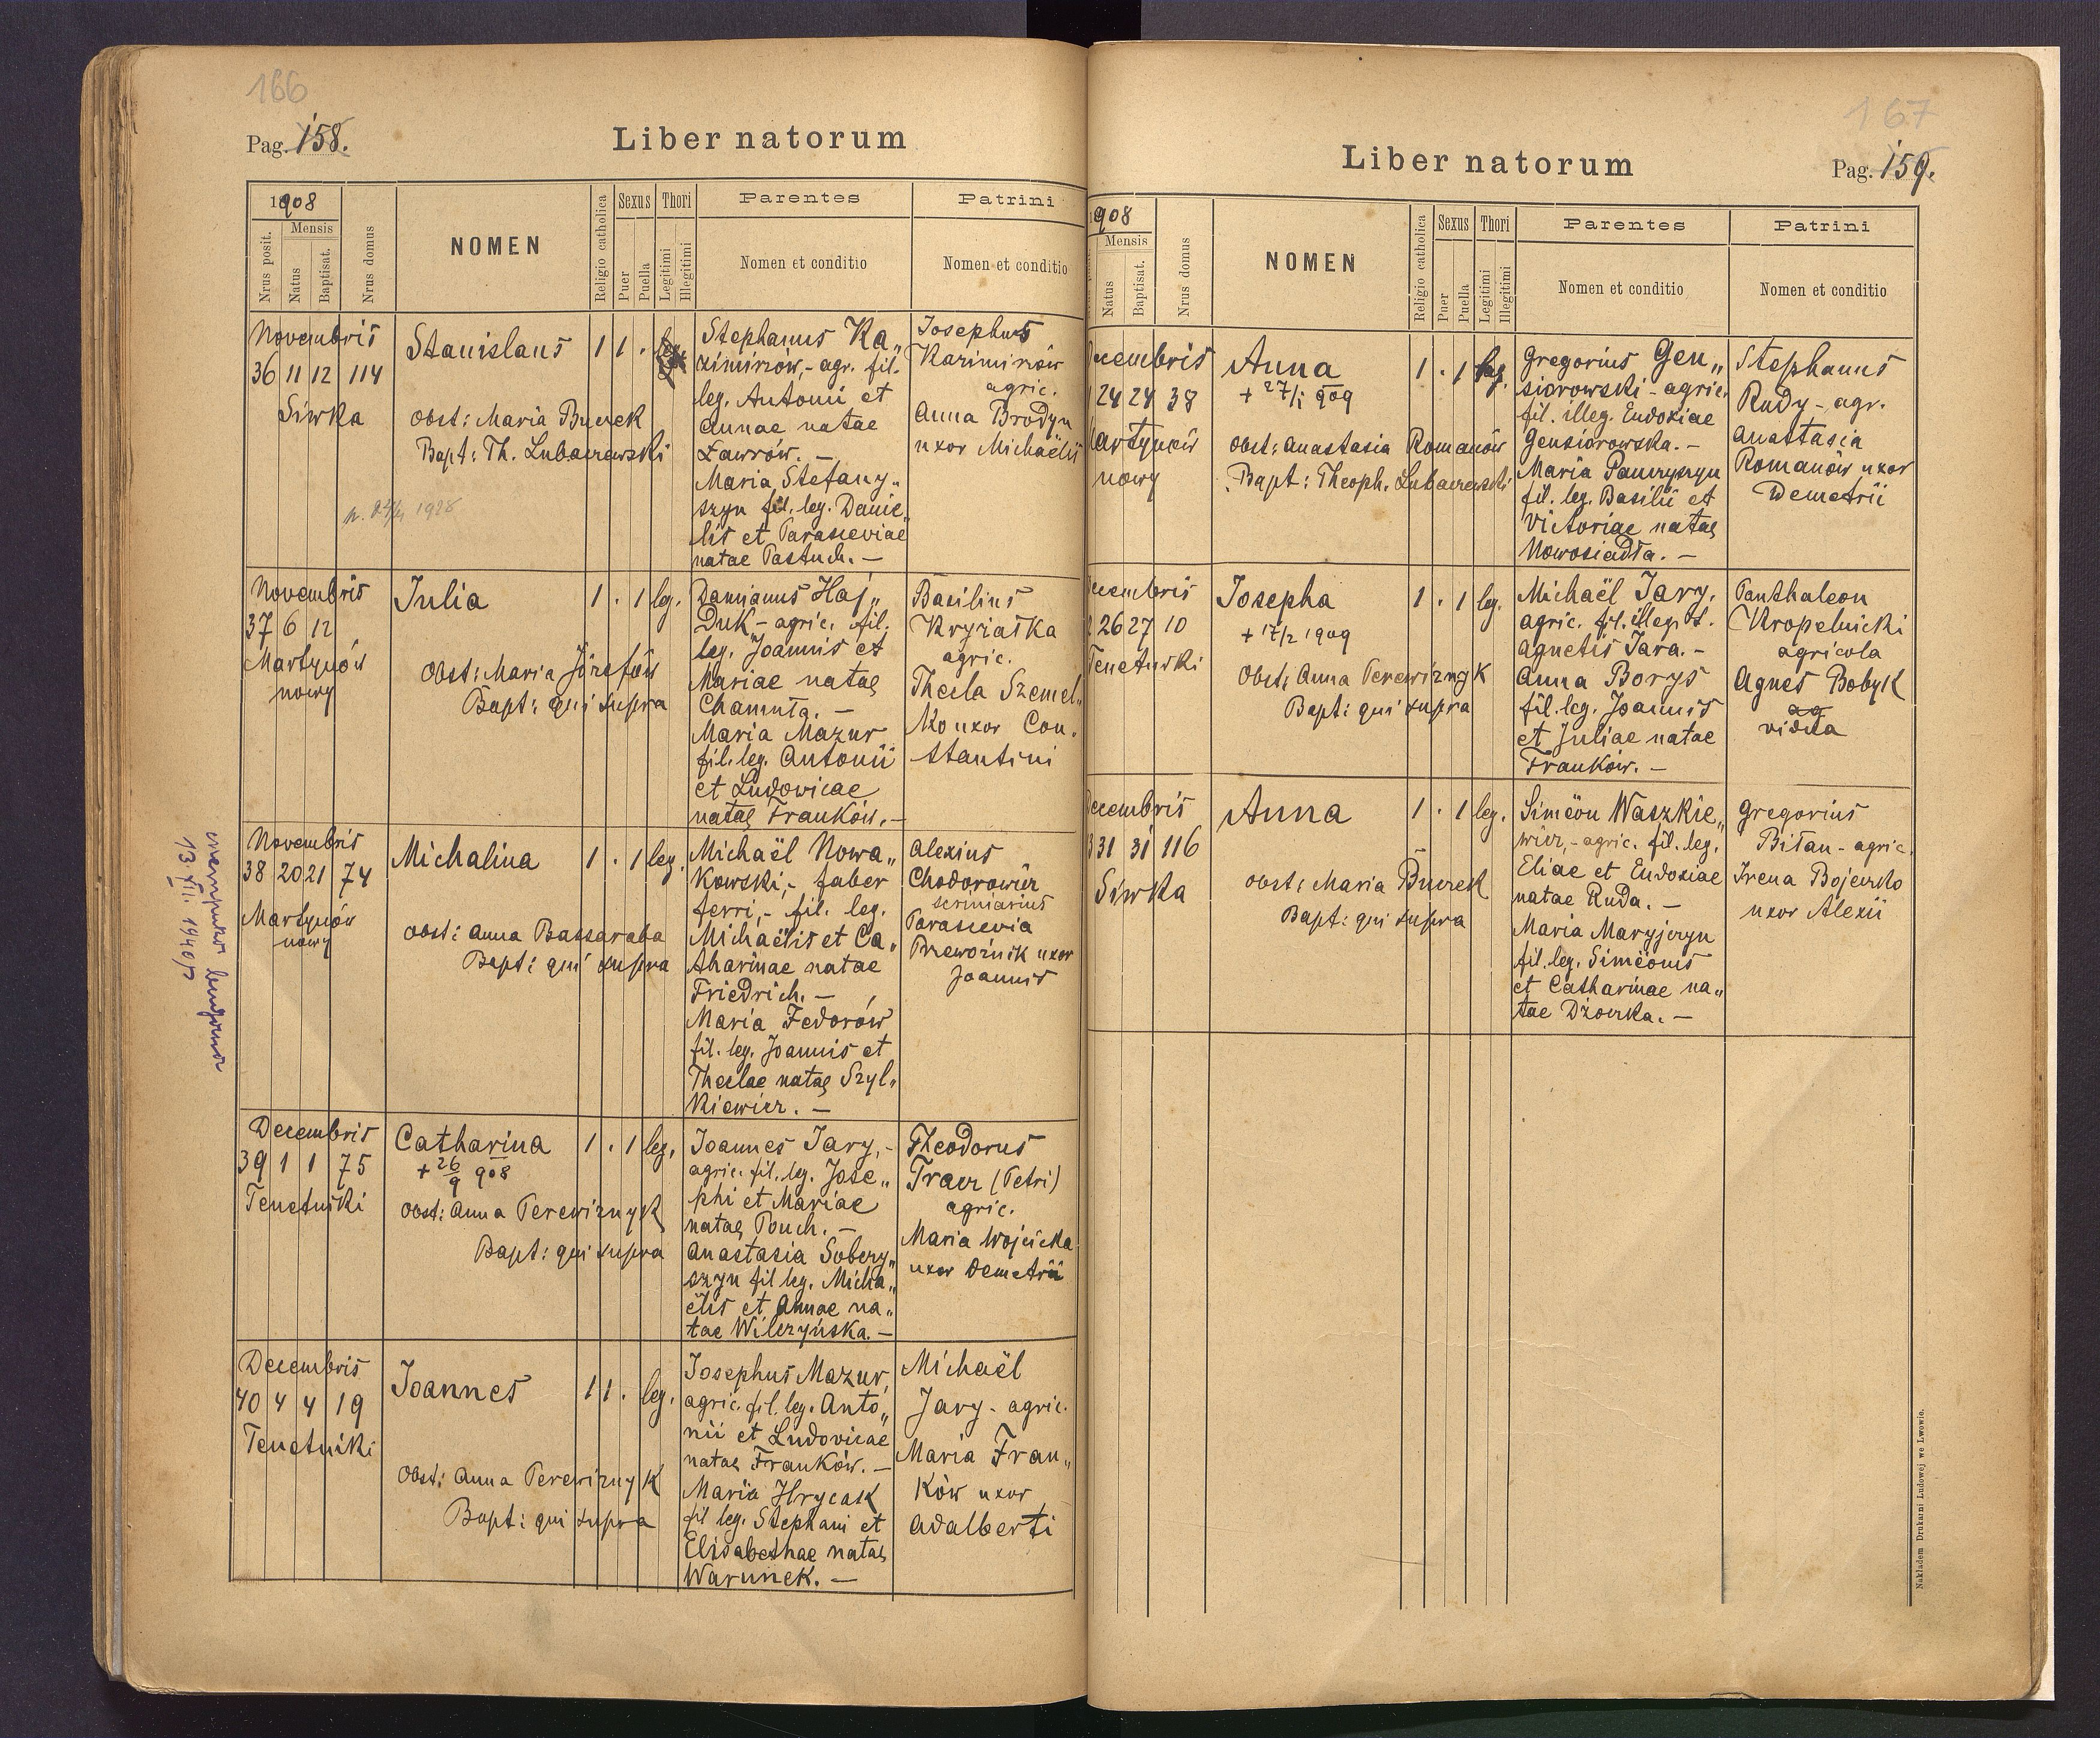 166
Pag. 158.
Liber natorum
1908
Nrus posit.
Mensis
Natus
Baptisat.
Nrus domus
NOMEN
Religio catholica
Sexus
Puer
Puella
Thori
Legitimi
Illegitimi
Parentes
Nomen et conditio
Patrini
Nomen et conditio
Novembris
36 11 12 114
Siwka
Stanislaus 1 1 . leg.
obst: Maria Burek
Bapt: Th. Lubaczewski
1928
Stephanus Ka„
zimirów,- agr. fil.
leg. Antonii et
Annae natae
Ławrów. -
Maria Stefany„
szyn fil. leg. Danie„
lis et Parasceviae
natae Pastuch. -
Josephus
Kazimirów
agric.
Anna Brodyn
uxor Michaëlis
Novembris
37 6 12
Martynów
nowy
Julia 1 . 1 leg.
Obst: Maria Józefów
Bapt: qui supra
Damianus Haj„
Duk - agric. fil.
leg. Joannis et
Mariae natae
Chamuta. -
Maria Mazur
fil. leg. Antonii
et Ludowicae
natae Franków. -
Basilius
Kryzaika
agric.
Thecla Szemel„
ko uxor Con„
stantini
Novembris
38 20 21 74
Martynów
nowy
Michalina 1 . 1 leg.
obst: Anna Bassaraba
Bapt: qui supra
13. XII. 1940 r
Michaël Nowa„
Kowski,- faber
ferri,- fil. leg.
Michaëlis et Ca„
tharinae natae
Friedrich. -
Maria Fedorów
fil. leg. Joannis et
Theclae natae Szyl„
Kiewicz. -
Alexius
Chodorowicz
scriniarius
Parascevia
Przewoźnik uxor
Joannis
Decembris
39 1 1 75
Tenetniki
Catharina 1 . 1 leg.
+ 26/9 908
obst: Anna Perewiznyk
Bapt: qui supra
Joannes Jary,-
agric. fil. leg. Jose„
phi et Mariae
natae Pouch. -
Anastasia Sobery„
szyn fil leg. Micha„
ëlis et Annae na„
tae Wilczyńska. -
Theodorus
Tracz (Petri)
agric.
Maria Wojcicka
uxor Demetrii
Decembris
40 4 4 19
Tenetniki
Joannes 1 1 . leg.
Obst: Anna Perewiznyk
Bapt: qui supra
Josephus Mazur,
agric. fil. leg. Anto„
nii et Ludovicae
natae Franków. -
Maria Hrycak
fil leg. Stephani et
Elisabethae natae
Warunek. -
Michaël
Jary - agric.
Maria Fran„
ków uxor
Adalberti
167
Liber natorum
Pag. 159.
1908
Mensis
Natus
Baptisat.
Nrus domus
NOMEN
Religio catholica
Sexus
Puer
Puella
Thori
Legitimi
Illegitimi
Parentes
Nomen et conditio
Patrini
Nomen et conditio
ecembris
1 24 24 38
artynów
nowy
Anna 1 . 1 leg.
+ 27/1 909
obst: Anastasia Romanów
Bapt: Theoph. Lubaczewski
Gregorius Gen„
siorowski - agric.
fil. illeg. Eudoxiae
Gensiorowska. -
Maria Panczyszyn
fil. leg. Basilii et
Victoriae natae
Nowosiadła. -
Stephanus
Rudy - agr.
Anastasia
Romanów uxor
Demetrii
ecembris
2 26 27 10
Tenetniki
Josepha 1 . 1 leg.
+ 17/2 1909
Obst: Anna Perewiznyk
Bapt: qui supra
Michaël Jary,
agric. fil. illegit.
Agnetis Jara. -
Anna Borys
fil. leg. Joannis
et Juliae natae
Franków. -
Panthaleon
Kropelnicki
agricola
Agnes Bobyk
ag
vidua
ecembris
3 31 31 116
Siwka
Anna 1 . 1 leg.
obst: Maria Burek
Bapt: qui supra
Simëon Waszkie„
wicz,- agric. fil. leg.
Eliae et Eudoxiae
natae Ruda. -
Maria Maryjczyn
fil. leg. Simëonis
et Catharinae na„
tae Dżoczka. -
Gregorius
Bitan - agric.
Irena Bojeczko
uxor Alexii
Nakładem Drukarni Ludowej we Lwowie.